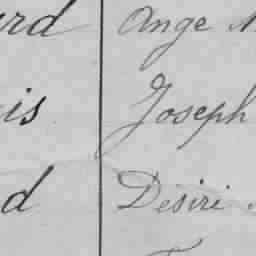 ard Ange
is Joseph
d Desiri